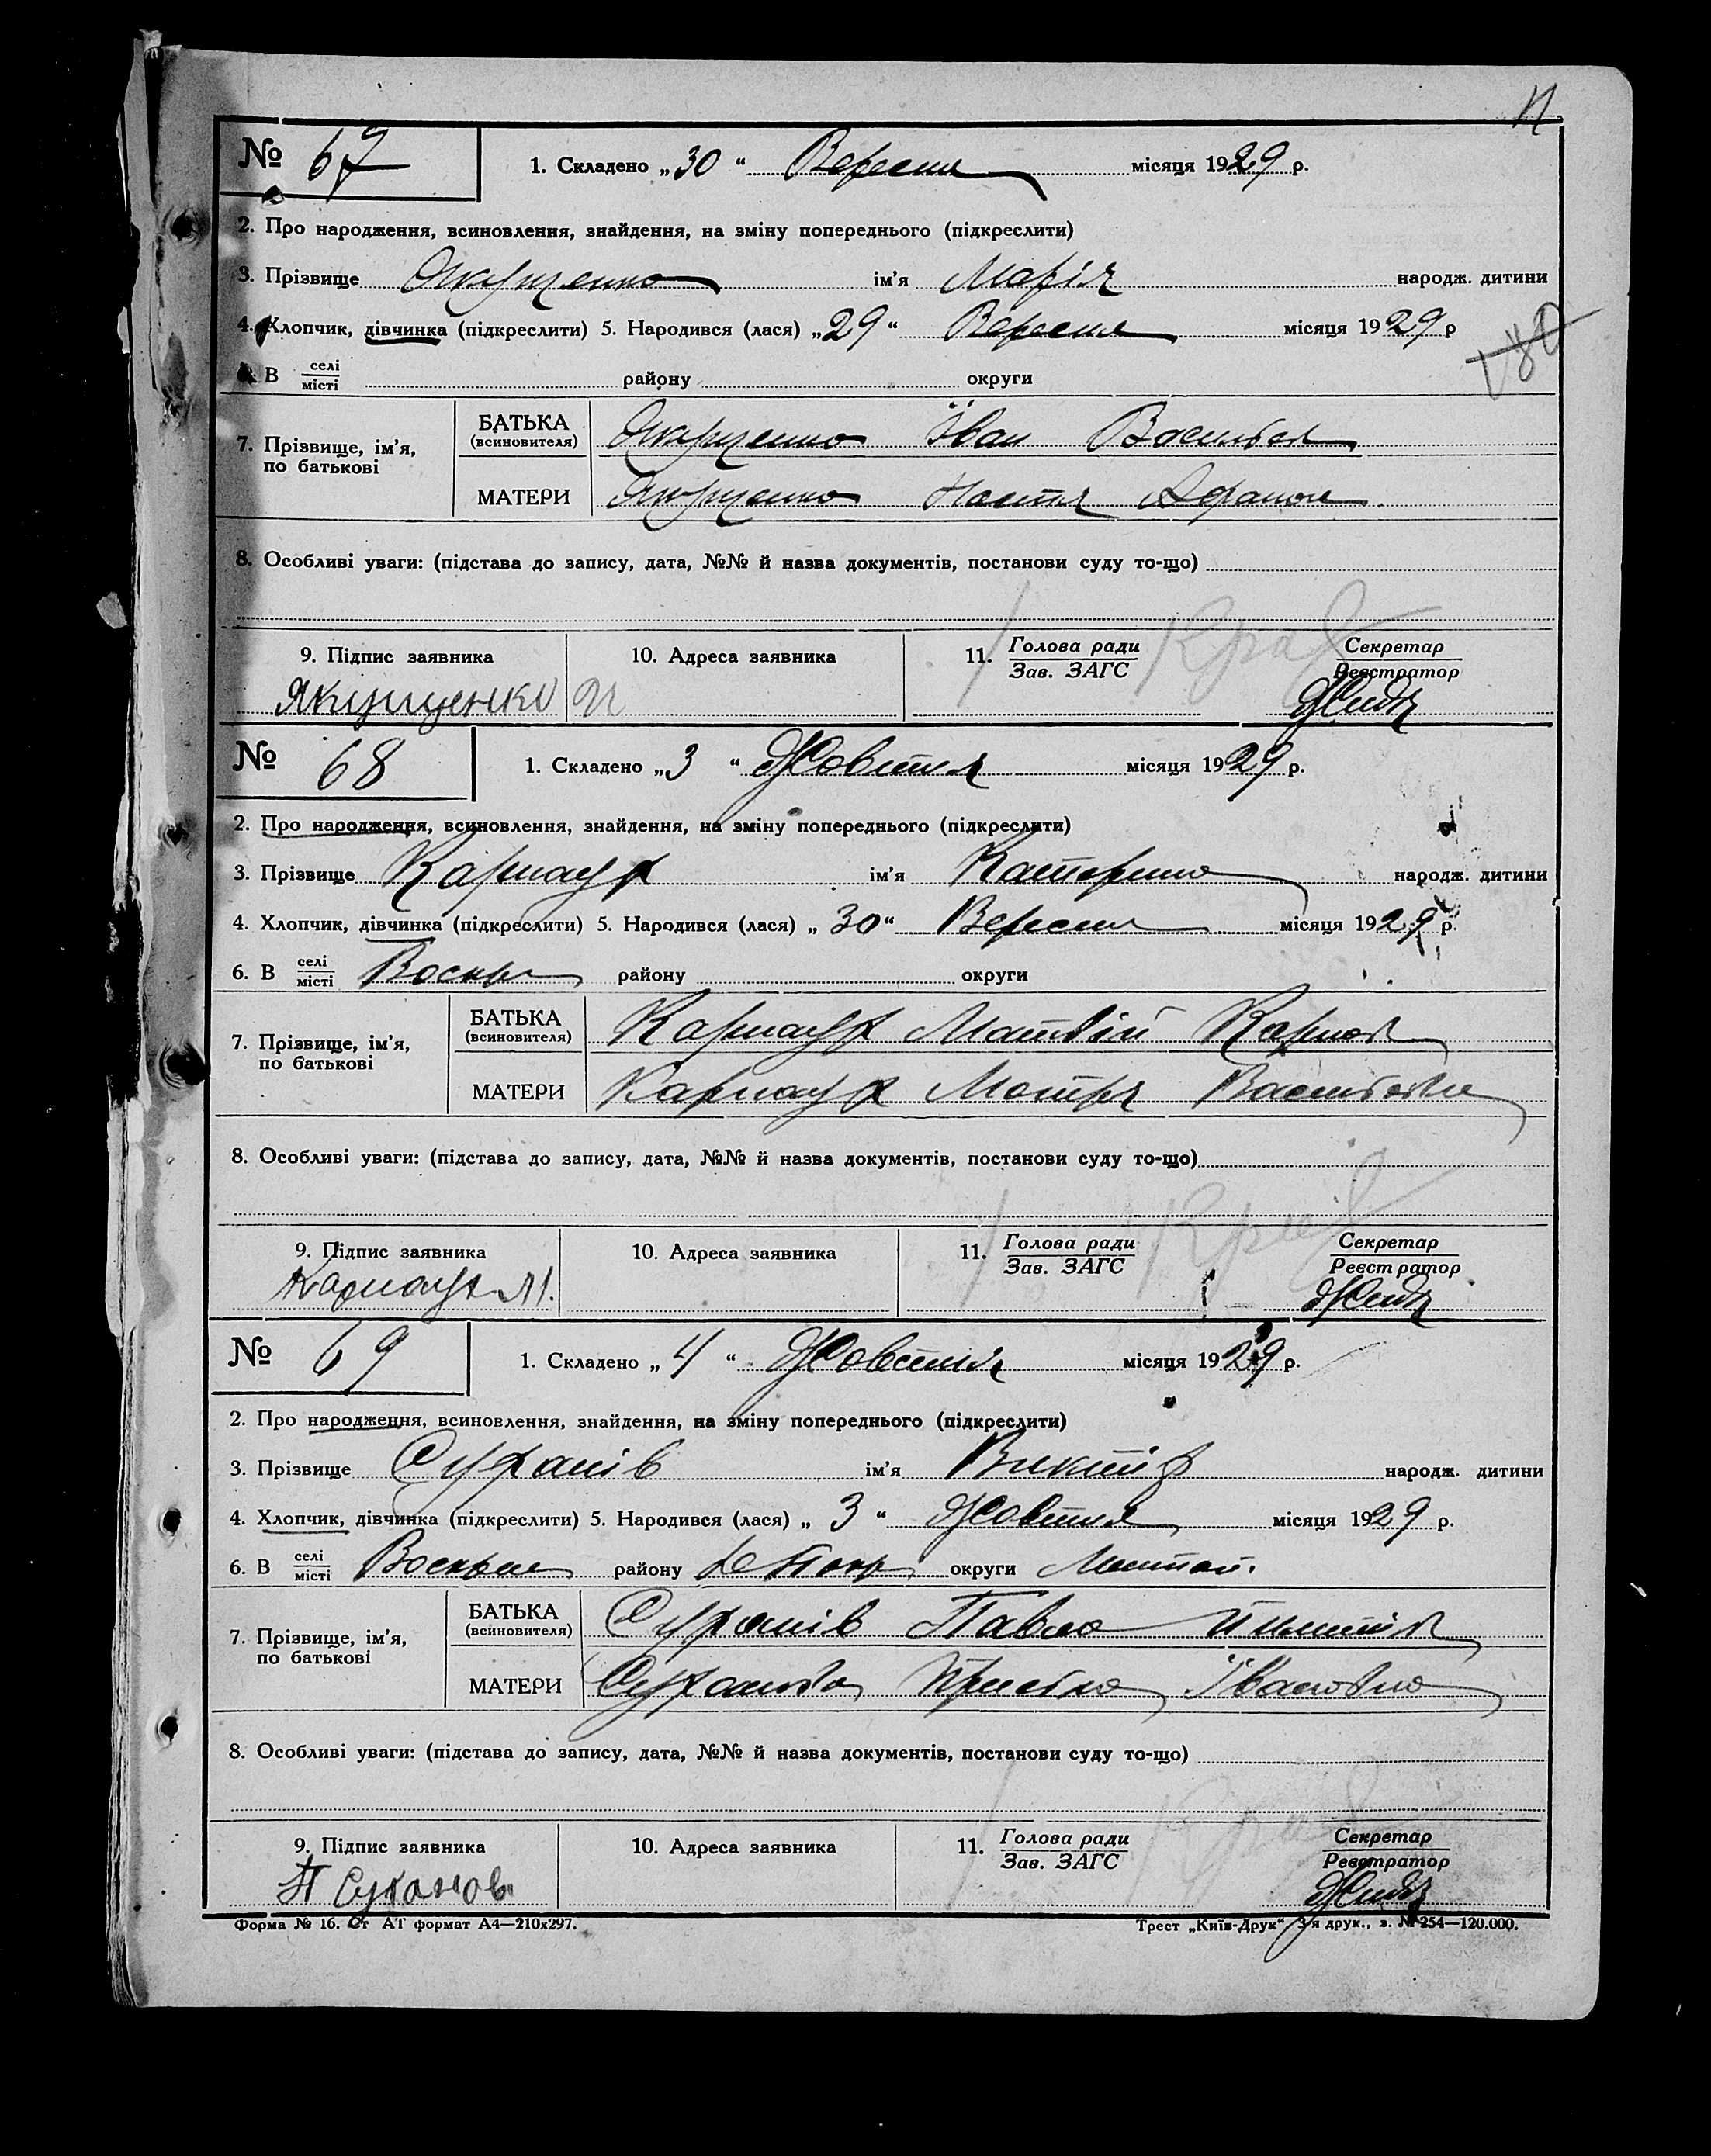 № 67 1. Складено „30“ Вересня місяця 1929 р.
2. Про народження, всиновлення, знайдення, на зміну попереднього (підкреслити)
3. Прізвище Якущенко ім’я Марія народж. дитини
4. Хлопчик, дівчинка (підкреслити) 5. Народився (лася) „29“ Вересня місяця 1929 р
180
В селі/місті району округи
7. Прізвище, ім’я, по батькові
БАТЬКА (всиновителя) Якущенко Іван Васильов
МАТЕРИ Якущенко Настя
8. Особливі уваги: (підстава до запису, дата, №№ й назва документів, постанови суду то-що)
9. Підпис заявника 10. Адреса заявника 11. Голова ради/Зав. ЗАГС Секретар/Реєстратор
Якущенко
№ 68 1. Складено „3“ Жовтня місяця 1929 р.
2. Про народження, всиновлення, знайдення, на зміну попереднього (підкреслити)
3. Прізвище Карнаух ім’я Катерина народж. дитини
4. Хлопчик, дівчинка (підкреслити) 5. Народився (лася) „30“ Вересня місяця 1929 р.
6. В селі/місті Воскр району округи
7. Прізвище, ім’я, по батькові
БАТЬКА (всиновителя) Карнаух Матвій Карпов
МАТЕРИ Карнаух Мотря Васильовна
8. Особливі уваги: (підстава до запису, дата, №№ й назва документів, постанови суду то-що)
9. Підпис заявника 10. Адреса заявника 11. Голова ради/Зав. ЗАГС Секретар/Реєстратор
Карнаух М.
№ 69 1. Складено „4“ Жовтня місяця 1929 р.
2. Про народження, всиновлення, знайдення, на зміну попереднього (підкреслити)
3. Прізвище Суханів ім’я Виктір народж. дитини
4. Хлопчик, дівчинка (підкреслити) 5. Народився (лася) „3“ Жовтня місяця 1929 р.
6. В селі/місті району округи
7. Прізвище, ім’я, по батькові
БАТЬКА (всиновителя) Суханів Павло
МАТЕРИ Суханова Івановна
8. Особливі уваги: (підстава до запису, дата, №№ й назва документів, постанови суду то-що)
9. Підпис заявника 10. Адреса заявника 11. Голова ради/Зав. ЗАГС Секретар/Реєстратор
П Суханов
Форма № 16. Ст АТ формат А4—210x297. Трест „Київ-Друк“, 3-я друк., з. № 254—120.000.